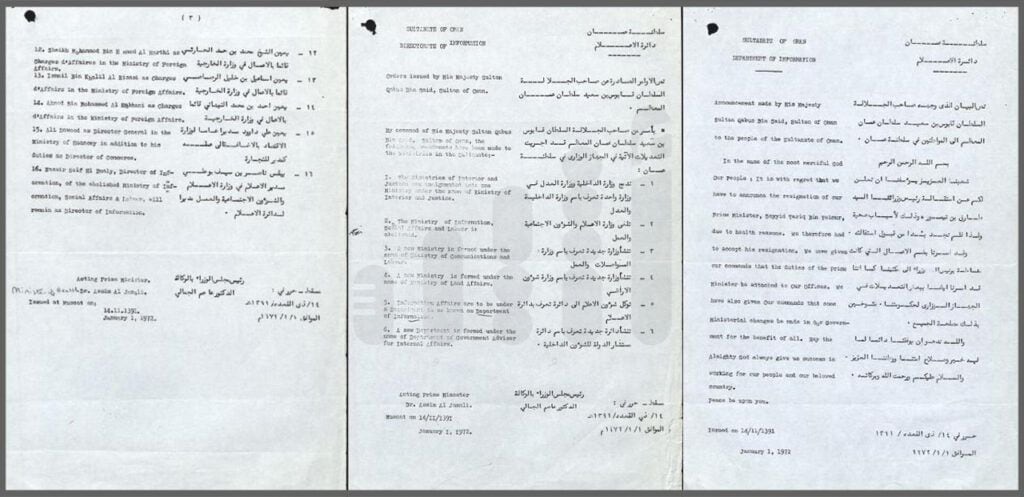 ( ٣ )
12. Sheikh Mohammed Bin Hamed Al Harthi as
Charges d'Affaires in the Ministry of Foreign
Affairs.
13. Ismail Bin Khalil Al Rasasi as Charges
d'Affaires in the Ministry of Foreign Affairs.
14. Ahmed Bin Mohammed Al as Charges
d'Affaires in the Ministry of Foreign Affairs.
15. Ali Dawood as Director General in the
Ministry of Economy in addition to his
duties as Director of Commerce.
16. Nassir Seif El Bualy, Director of Inf-
ormation, of the abolished Ministry of Inf-
ormation, Social Affairs & Labour, will
remain as Director of Information.
١٢ - يعين الشيخ محمد بن حمد الحارثي
قائما بالاعمال في وزارة الخارجية
١٣ - يعين اسماعيل بن خليل الرصاصي
قائما بالاعمال في وزارة الخارجية
١٤ - يعين احمد بن محمد
بالاعمال في وزارة الخارجية
١٥ - يعين علي داوود مديرا عاما لوزارة
الاقتصاد بالاضافة الى
كمدير للتجارة
١٦ - يبقى ناصر بن سيف بوعلي
مدير الاعلام في وزارة الاعلام
والشؤون الاجتماعية والعمل مديرا
لدائرة الاعلام
Acting Prime Minister.
Dr. Assim Al Jamali.
Issued at Muscat on:
14.11.1391.
January 1, 1972.
رئيس مجلس الوزراء بالوكالة
الدكتور عاصم الجمالي
مسقط - حرر في :
١٤ / ذي القعدة / ١٣٩١
الموافق ١ / ١ / ١٩٧٢م
SULTANATE OF OMAN
DIRECTORATE OF INFORMATION
سلطنة عمان
دائرة الاعلام
Orders issued by His Majesty Sultan
Qabus Bin Said, Sultan of Oman.
نص الاوامر الصادرة عن صاحب الجلالة
السلطان قابوس بن سعيد سلطان عمان
المعظم
By command of His Majesty Sultan Qabus
Bin Said, Sultan of Oman, the
following amendments have been made to
the Ministries in the Sultanate:
1. The Ministries of Interior and
Justice are amalgamated into one
Ministry under the name of Ministry of
Interior and Justice.
2. The Ministry of Information,
Social Affairs and Labour is
abolished.
3. A new Ministry is formed under the
name of Ministry of Communications and
Labour.
4. A new Ministry is formed under the
name of Ministry of Land Affairs.
5. Information Affairs are to be under
a Department to be known as Department
of Information.
6. A new Department is formed under the
name of Department of Government Adviser
for Internal Affairs.
يأمر من صاحب الجلالة السلطان قابوس
بن سعيد سلطان عمان المعظم قد اجريت
التعديلات الآتية في الجهاز الوزاري في سلطنة
عمان :
١ - تدمج وزارة الداخلية ووزارة العدل في
وزارة واحدة تعرف باسم وزارة الداخلية
والعدل
٢ - تلغى وزارة الاعلام والشؤون الاجتماعية
والعمل
٣ - تنشأ وزارة جديدة تعرف باسم وزارة
المواصلات والعمل
٤ - تنشأ وزارة جديدة تعرف باسم وزارة شؤون
الاراضي
٥ - توكل شؤون الاعلام الى دائرة تعرف بدائرة
الاعلام
٦ - تنشأ دائرة جديدة تعرف باسم دائرة
مستشار الدولة للشؤون الداخلية
Acting Prime Minister
Dr. Assim Al Jamali.
Muscat on 14/11/1391
January 1, 1972.
رئيس مجلس الوزراء بالوكالة
الدكتور عاصم الجمالي
مسقط - حرر في :
١٤ / ذي القعدة / ١٣٩١
الموافق ١ / ١ / ١٩٧٢م
SULTANATE OF OMAN
DEPARTMENT OF INFORMATION
سلطنة عمان
دائرة الاعلام
Announcement made by His Majesty
Sultan Qabus Bin Said, Sultan of Oman
to the people of the Sultanate of Oman.
In the name of the most merciful God
Our People; It is with regret that we
have to announce the resignation of our
Prime Minister, Sayyid Tariq Bin Taimur,
due to health reasons. We therefore had
to accept his resignation. We have given
our commands that the duties of the prime
Minister be attended to our Offices. We
have also given Our commands that some
Ministerial changes be made in Our Govern-
ment for the benefit of all. May the
Almighty God always give us success in
working for our people and our beloved
country.
Peace be upon you.
نص البيان الذي وجهه صاحب الجلالة
السلطان قابوس بن سعيد سلطان عمان
المعظم الى المواطنين في سلطنة عمان
بسم الله الرحمن الرحيم
شعبنا العزيز يؤسفنا ان نعلن
لكم عن استقالة رئيس وزرائنا السيد
طارق بن تيمور وذلك لاسباب صحية
ولذا فلم نجد بدا من قبول استقالته
والسلام عليكم ورحمة الله وبركاته
Issued on 14/11/1391
January 1, 1972
حرر في ١٤ / ذي القعدة / ١٣٩١
الموافق ١ / ١ / ١٩٧٢